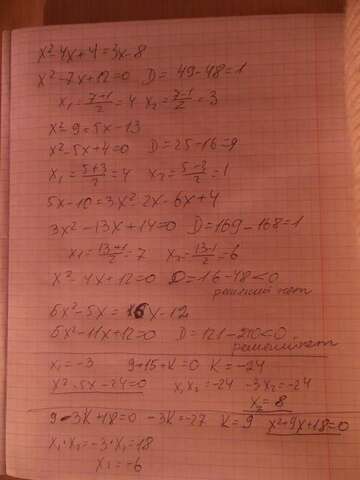 x²-4x+4=3x-8
x²-7x+12=0 D=49-48=1
x₁=7+1/2=4 x₂=7-1/2=3
x²-9=5x-13
x²-5x+4=0 D=25-16=9
x₁=5+3/2=4 x₂=5-3/2=1
5x-10=3x²-2x-6x+4
3x²-13x+14=0 D=169-168=1
x₁=13+1/2=7 x₂=13-1/2=6
x²-4x+12=0 D=16-48<0
решений нет
6x²-5x=6x-12
6x²-11x+12=0 D=121-290<0
решений нет
x₁=-3 9+15+K=0 K=-24
x²-5x-24=0 x₁x₂=-24 -3x₂=-24
x₂=8
9-3K+18=0 -3K=-27 K=9 x²+9x+18=0
x₁·x₂=-3·x₂=18
x₂=-6